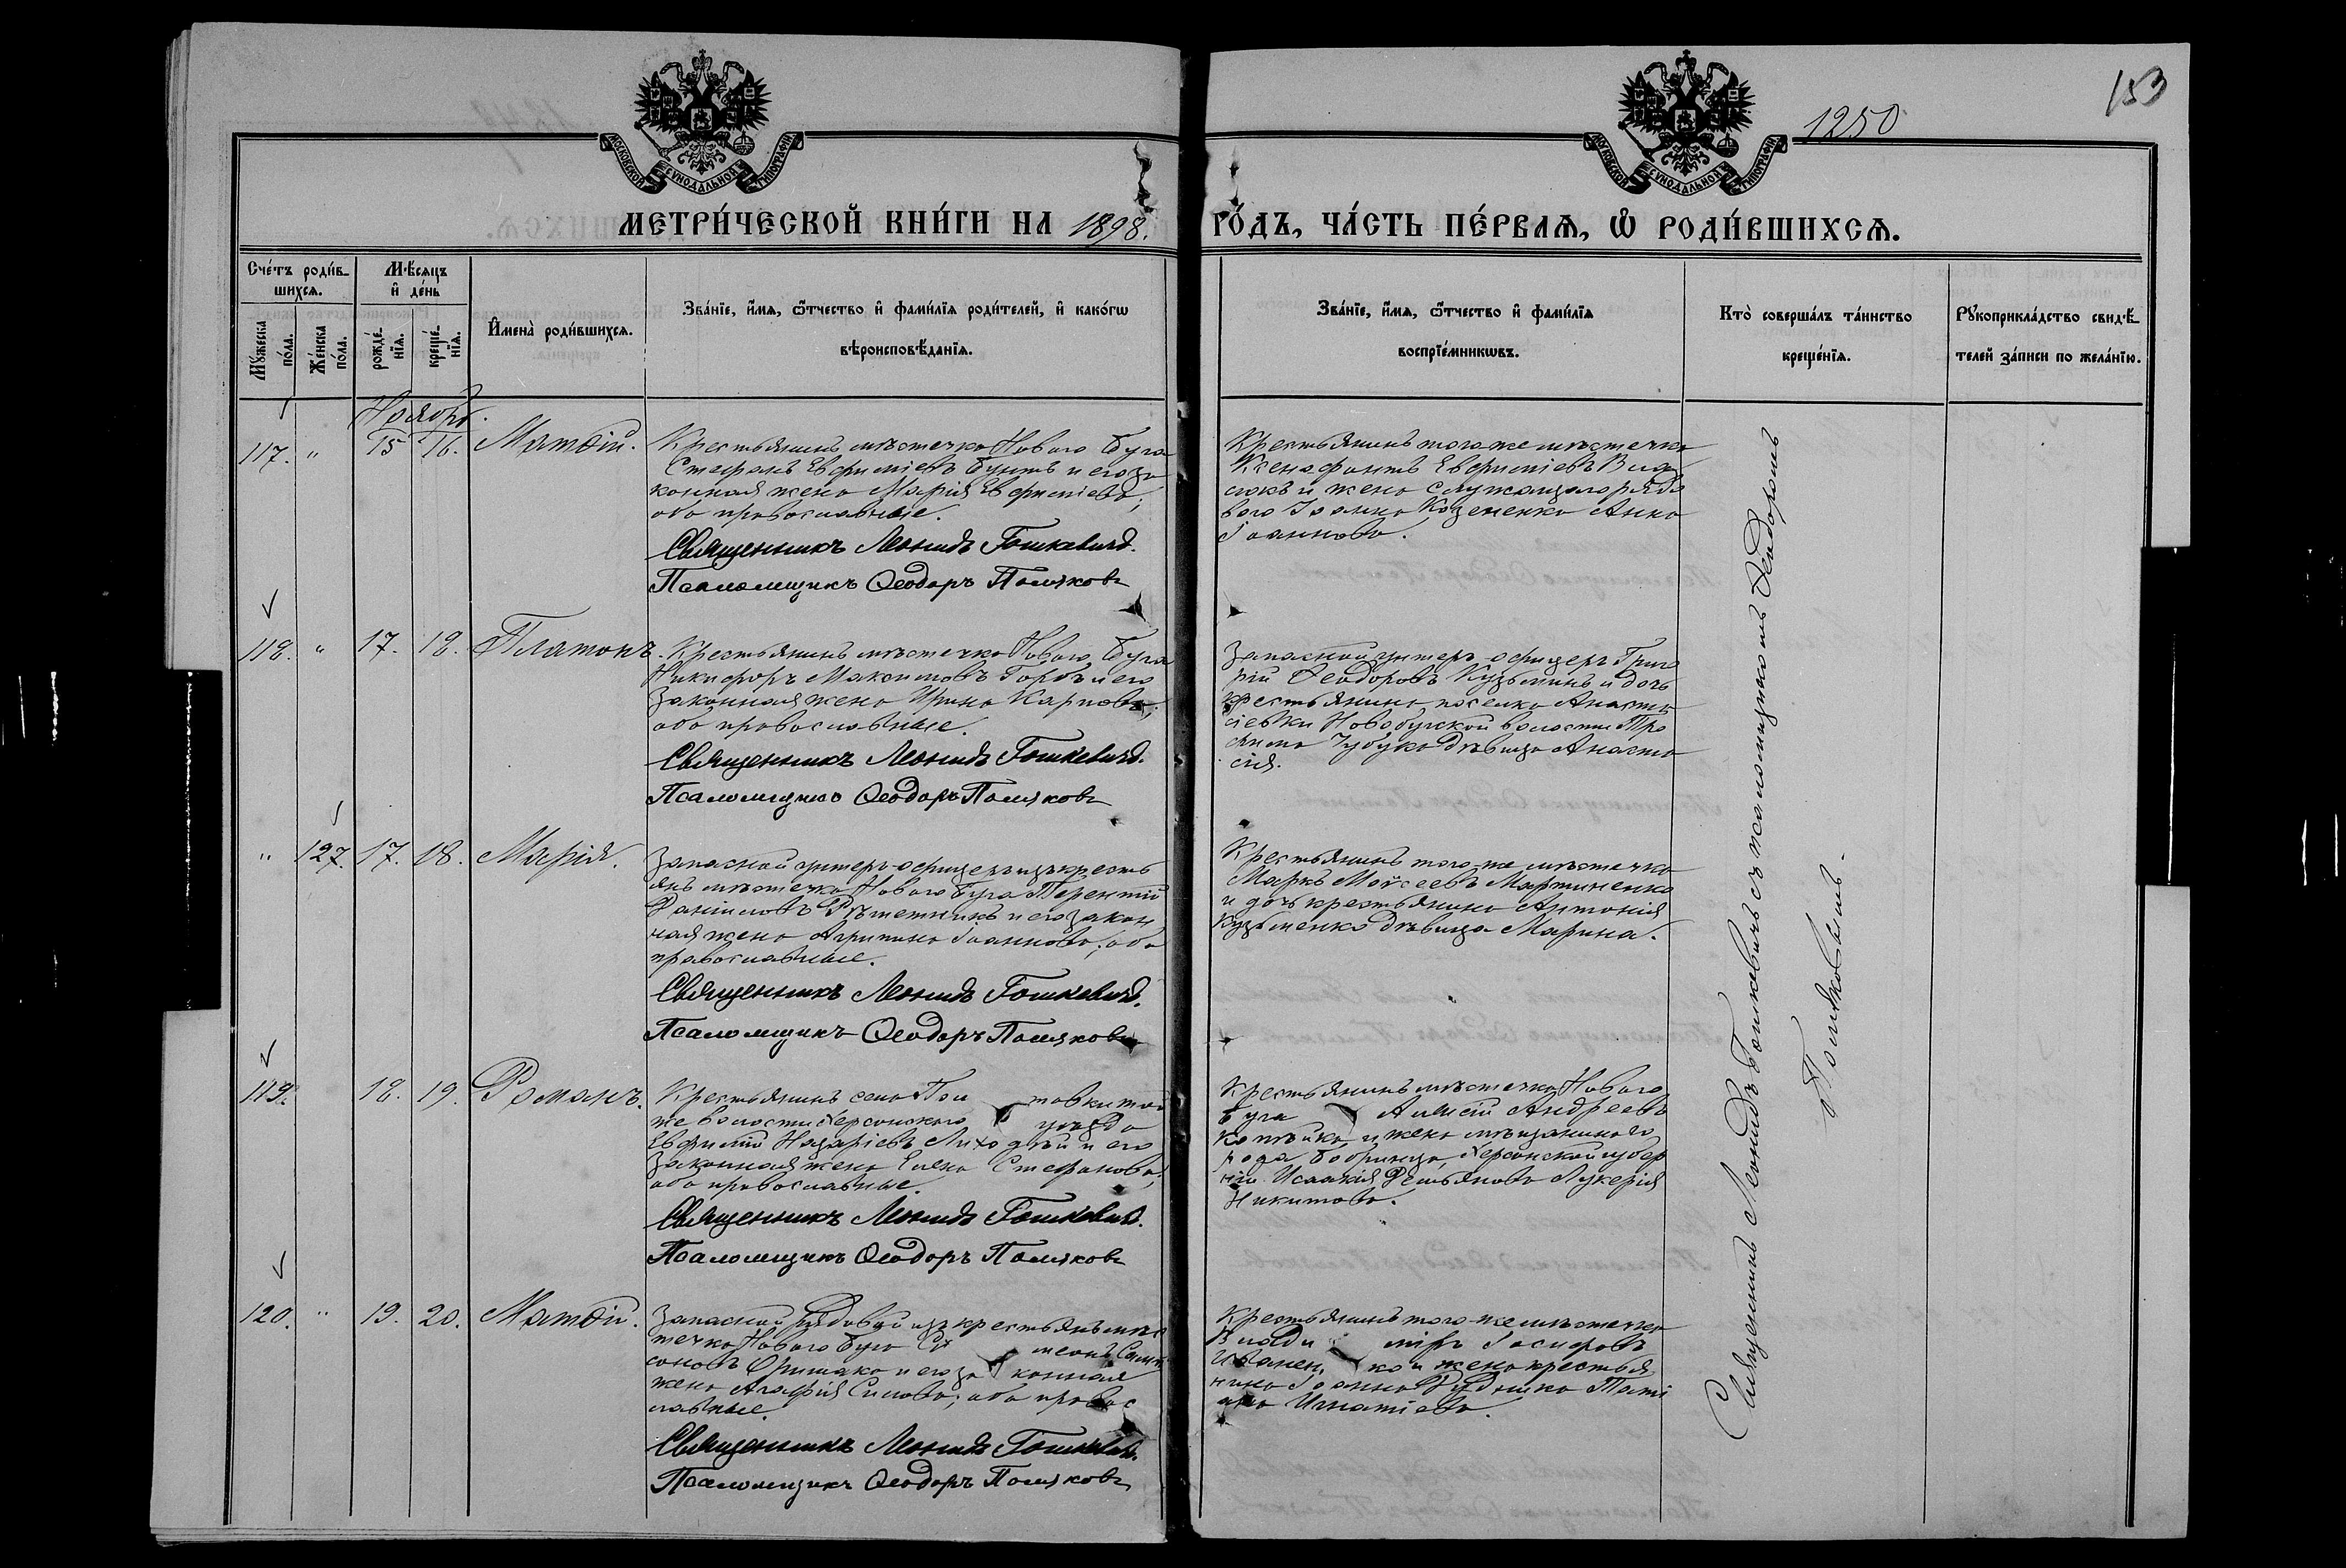 153
1250
МОСКОВСКОЙ СѴНОДАЛЬНОЙ ТИПОГРАФІИ
МОСКОВСКОЙ СѴНОДАЛЬНОЙ ТИПОГРАФІИ
МЕТРИ́ЧЕСКОЙ КНИ́ГИ НА 1898.
ГО́ДЪ, ЧА́СТЬ ПЕ́РВАѦ, Ѽ РОДИ́ВШИХСѦ.
Сче́тъ роди́в-
шихсѧ.
Мѣ́сяцъ
и҆ де́нь
Мꙋ́жеска
по́ла.
Же́нска
по́ла.
рожде́-
нїѧ.
креще́-
нїѧ.
И҆мена̀ роди́вшихсѧ.
Зва́нїе, и҆́мѧ, ѻ҆́тчество и҆ фами́лїѧ роди́телей, и҆ како́гѡ
вѣроисповѣ́данїѧ.
Зва́нїе, и҆́мѧ, ѻ҆́тчество и҆ фами́лїѧ
воспрїе́мникѡвъ.
Кто̀ соверша́лъ та́инство
креще́нїѧ.
Рꙋкоприкла́дство свидѣ́-
телей за́писи по жела́нїю.
Ноябрь.
117. " 15 16. Матѳій.
Крестьянинъ мѣстечка Новаго Буга
Стефанъ Евфиміевъ Бунтъ и его за
конная жена Марія Евфиміева;
оба православные.
Священникъ Леонидъ Гошкевичъ.
Псаломщикъ Ѳеодоръ Поляковъ
Крестьянинъ того же мѣстечка
Ксенофонтъ Евфиміевъ
и жена служащаго рядо
вого Іоанна Козененко Анна
Іоаннова.
118. " 17. 18. Платонъ.
Крестьянинъ мѣстечка Новаго Буга
Никифоръ Максимовъ Горбъ и его
законная жена Ирина Карпова;
оба православные.
Священникъ Леонидъ Гошкевичъ.
Псаломщикъ Ѳеодоръ Поляковъ
Запасной унтеръ-офицеръ Григо
рій Ѳеодоровъ Кузьминъ и дочь
крестьянина поселка Анаста
сіевки Новобугской волости Тро
фима Чубука дѣвица Анаста
сія.
" 127. 17. 18. Марія.
Запасной унтеръ-офицеръ изъ кресть
янъ мѣстечка Новаго Буга Терентій
Даніиловъ Рѣшетникъ и его закон
ная жена Агрипина Іоаннова; оба
православные.
Священникъ Леонидъ Гошкевичъ.
Псаломщикъ Ѳеодоръ Поляковъ
Крестьянинъ того-же мѣстечка
Маркъ Моѵсеевъ Мартиненко
и дочь крестьянина Антонія
Кузьменко дѣвица Марина.
119. 18. 19. Романъ.
Крестьянинъ села Пол тавки той
же волости Херсонскаго уѣзда
Евфимій Назаріевъ Лиходѣй и его
законная жена Елена Стефанова;
оба православные.
Священникъ Леонидъ Гошкевичъ.
Псаломщикъ Ѳеодоръ Поляковъ
Крестьянинъ мѣстечка Новаго
Буга Алексій Андреевъ
Копѣйка и жена мѣщанина го
рода Бобринца, Херсонской губер
ніи Исаакія Демьянова Лукерія
Никитова.
120. " 19. 20. Матѳій.
Запасной рядовой изъ крестьянъ мѣс
течка Новаго Буга Сѵ меонъ Самп
соновъ Яримака и его за конная
жена Агафія Силова; оба правос
лавные.
Священникъ Леонидъ Гошкевичъ.
Псаломщикъ Ѳеодоръ Поляковъ
Крестьянинъ того-же мѣстечка
Влади міръ Іосифовъ
Иванен ко и жена крестья
нина Іоанна Рудника Тати
ана Игнатіева.
Священникъ Леонидъ Гошкевичъ съ псаломщикомъ Ѳеодоромъ
Поляковымъ.